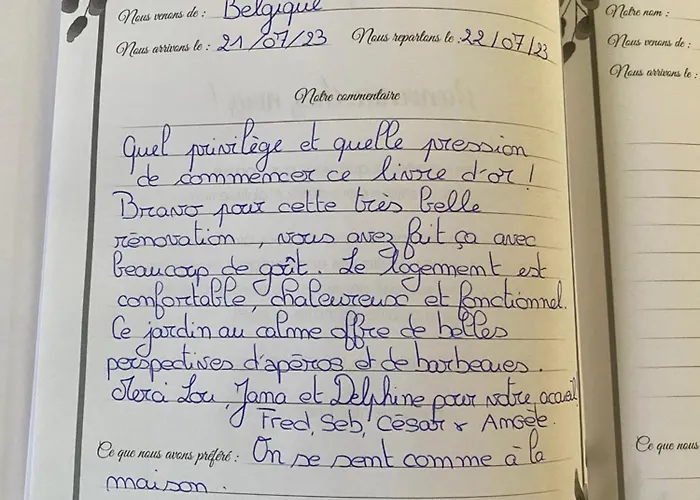 Nous venons de : Belgique
Nous arrivons le : 21/07/23 Nous repartons le : 22/07/23
Notre commentaire
Quel privilège et quelle pression
de commencer ce livre d'or !
Bravo pour cette très belle
rénovation, vous avez fait ça avec
beaucoup de goût. Le logement est
confortable, chaleureux et fonctionnel.
Ce jardin au calme offre de belles
perspectives d'apéros et de barbecues.
Merci Lou, Jana et Delphine pour votre accueil
Fred, Seb, César & Angèle.
Ce que nous avons préféré : On se sent comme à la
maison.
Notre nom :
Nous venons de :
Nous arrivons le :
Ce que nous